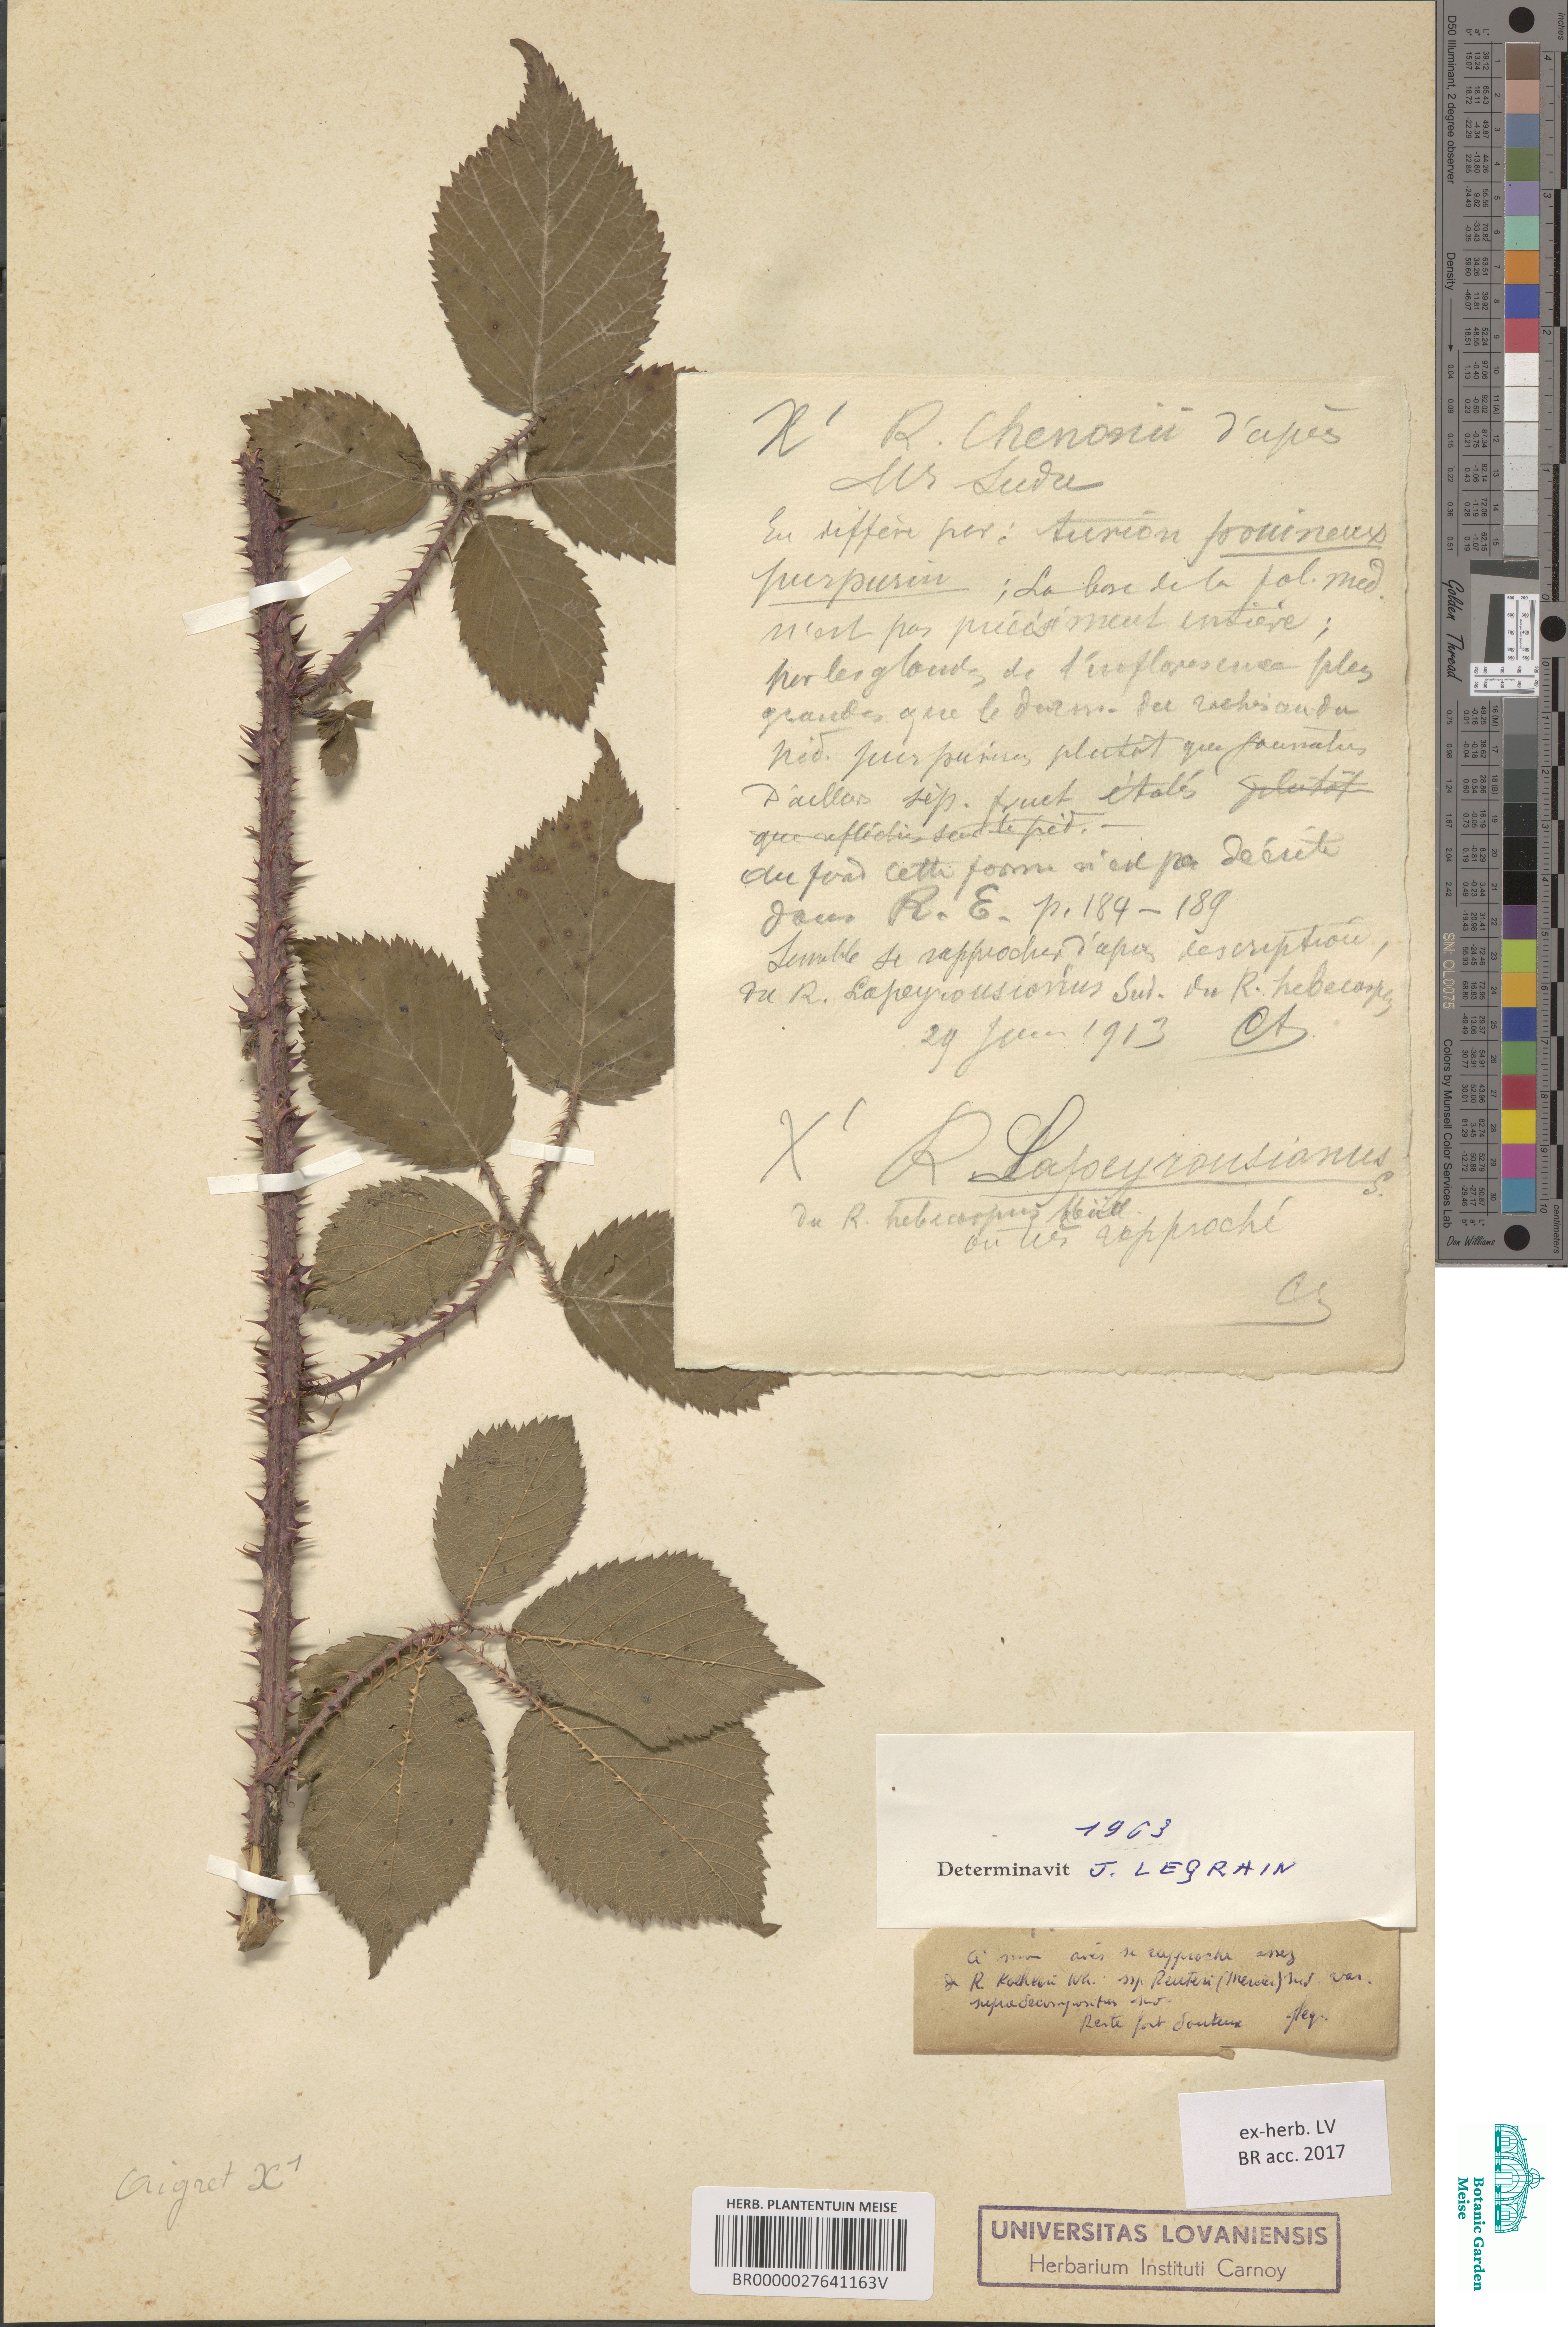 X' R. Chenonii d'après
Mr Sudre
En diffère par : turion pruineux
purpurin ; La base de la fol. méd.
n'est pas précisément entière ;
par les glandes de l'inflorescence plus
grandes que le diam. du rachis ou du
péd. purpurines plutôt que
D'ailleurs sép. fruct étalés plutôt
que réfléchis sur le péd. —
Au fond cette forme n'est pas décrite
dans R. E. p. 184 - 189
Semble se rapprocher d'après description,
du R. Lapeyrousianus Sud. du R. hebecarpus
29 1913 CA
X' R Lapeyrousianus
S.
du R. hebecarpus Müll.
ou très rapproché
CA
1963
Determinavit J. LEGRAIN
A mon avis se rapproche assez
de R. Koehleri Wh. ssp. Reuteri (Mercier) Sud. var.
supradecompositus Sud.
Reste fort douteux Jleg.
ex-herb. LV
BR acc. 2017
Aigret X1
HERB. PLANTENTUIN MEISE
BR0000027641163V
UNIVERSITAS LOVANIENSIS
Herbarium Instituti Carnoy
Botanic Garden
Meise
D50 Illuminant, 2 degree observer
Density
Golden Thread
SN: OL0075
Colors by Munsell Color Services Lab
Don Williams
inches
centimeters